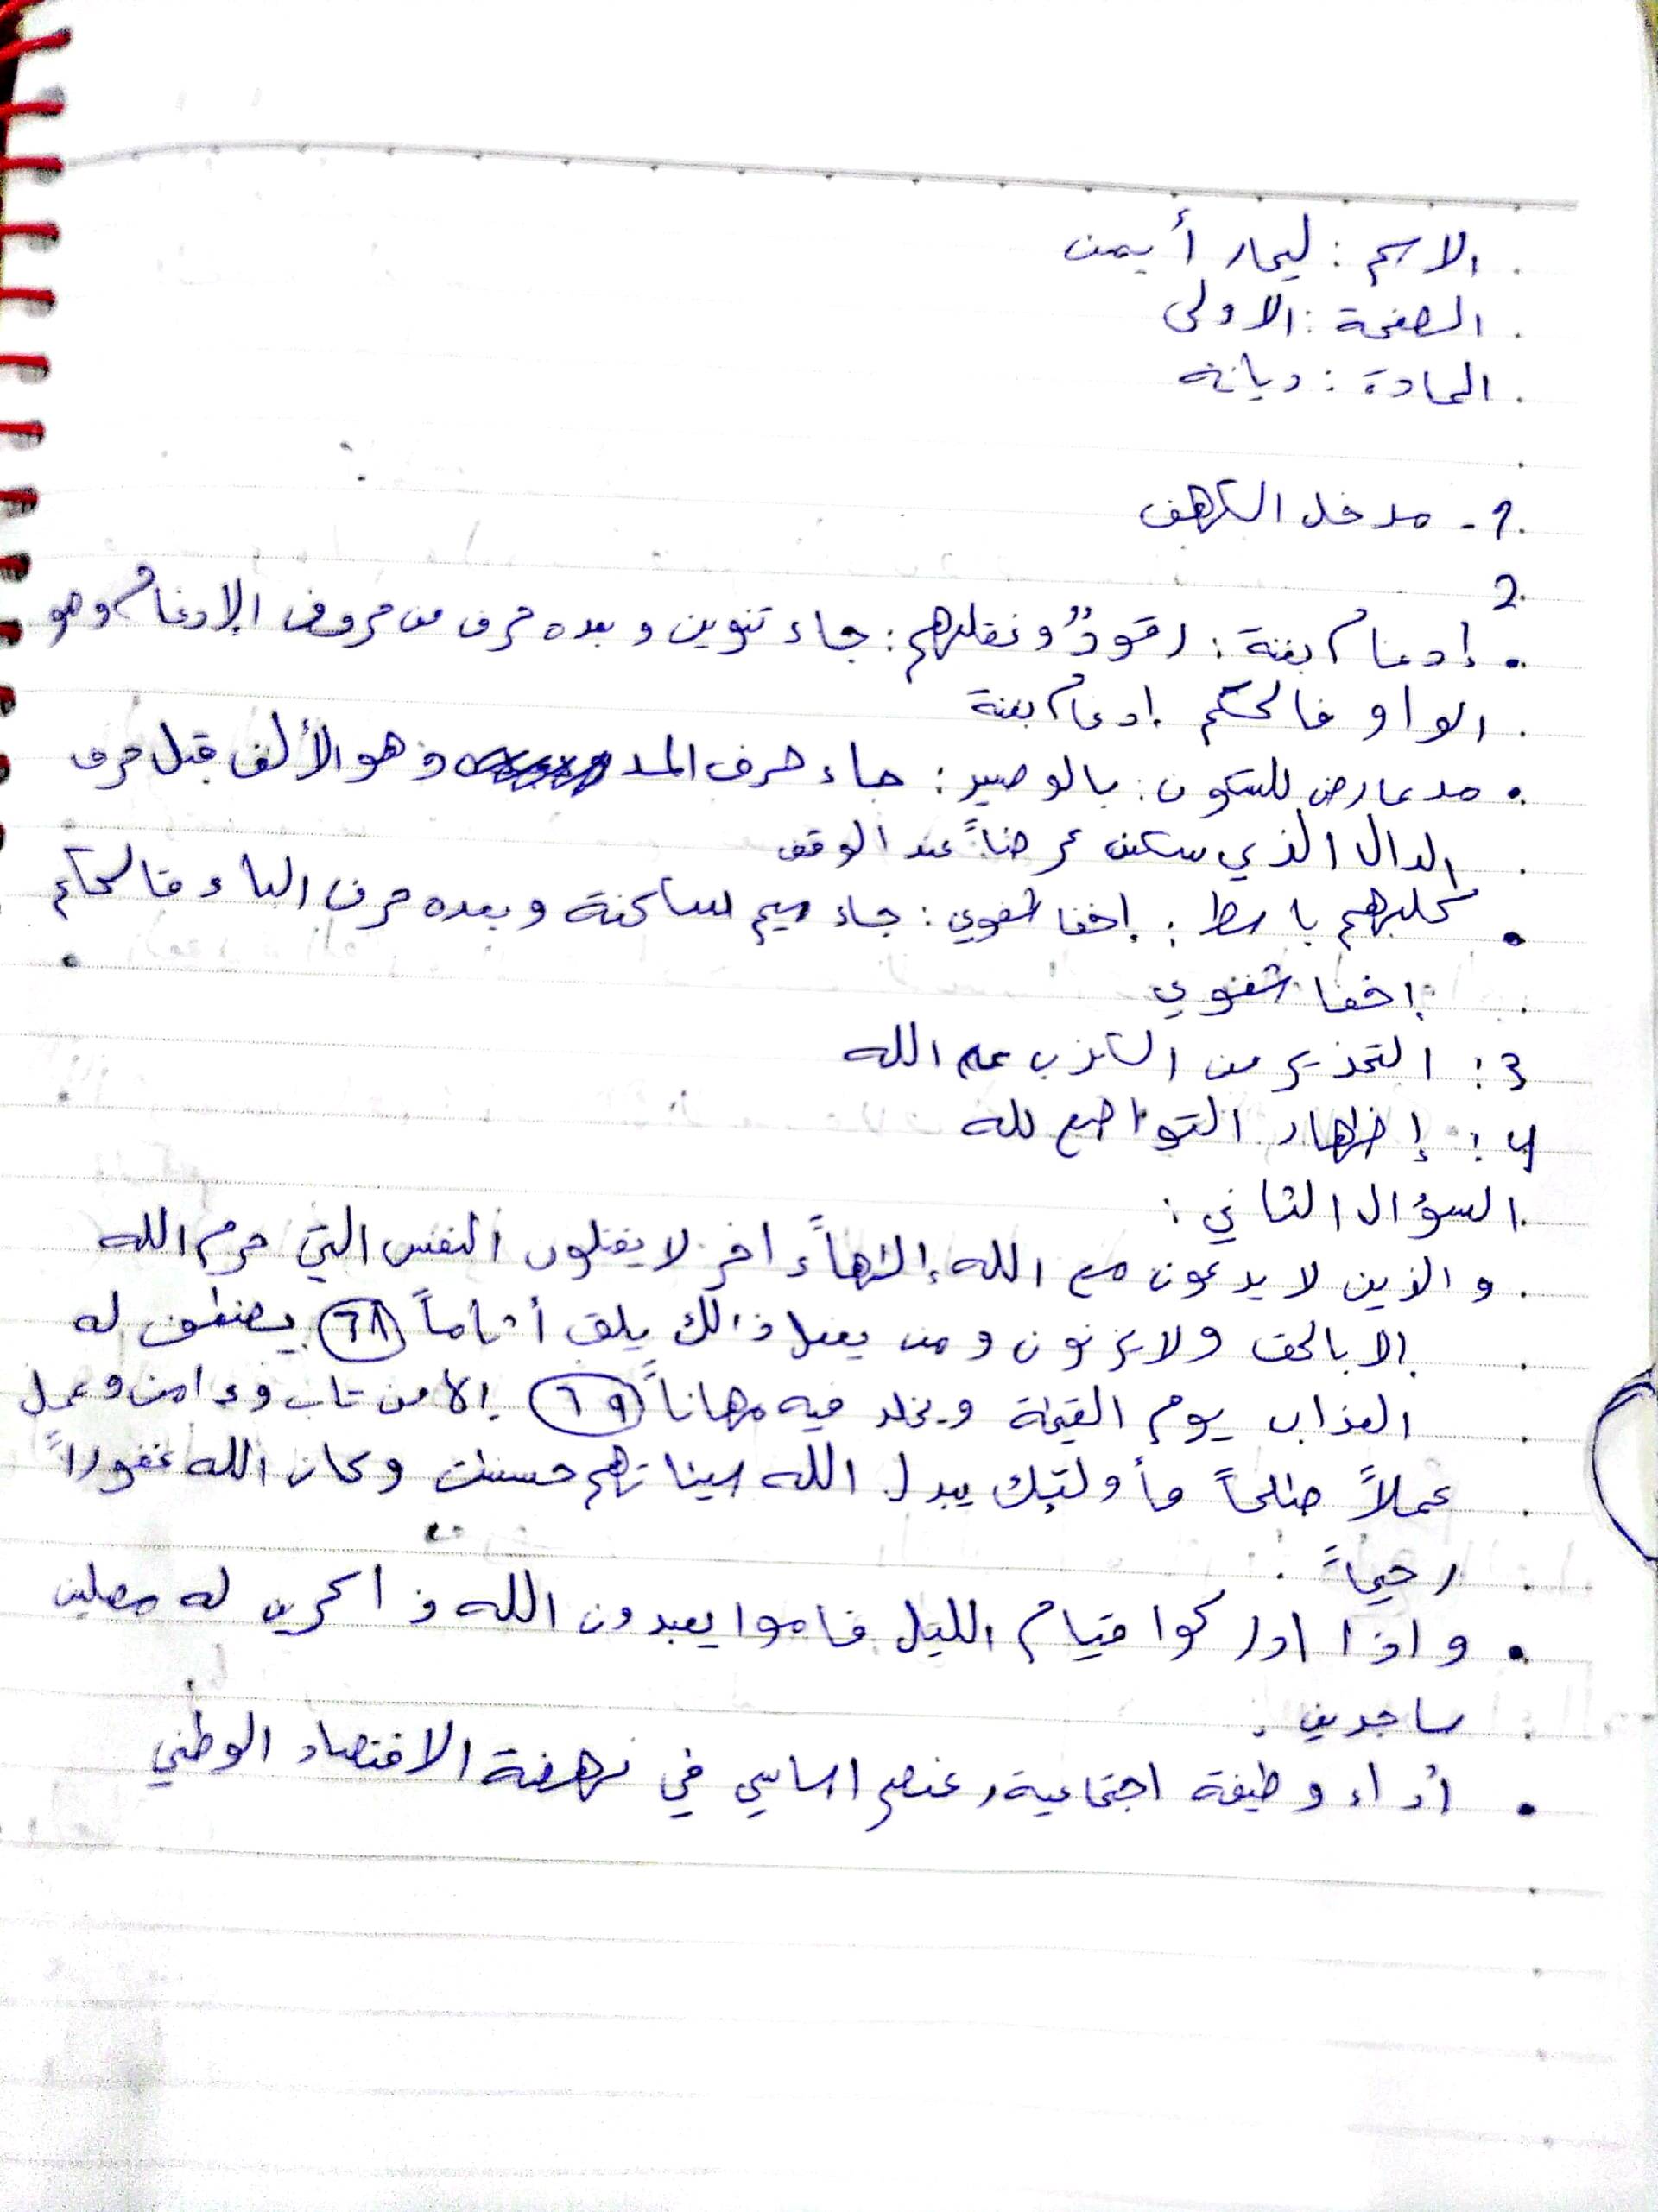 الاسم : ليمار أيمن
الصفحة : الاولى
المادة : ديانه
1- مدخل الكهف
2
• إدغام بغنة : رقودٌ ونقلبهم : جاء تنوين وبعده حرف من حروف الإدغام وهو
الواو فالحكم إدغام بغنة
• مد عارض للسكون : بالوصيد : جاء حرف المد وهو الألف قبل حرف
الدال الذي سكن عرضاً عند الوقف
• كلبهم باسط : إخفا شفوي : جاء ميم ساكنة وبعده حرف الباء فالحكم
إخفا شفوي
3 : التحذير من الكذب على الله
4 : إظهار التواضع لله
السؤال الثاني :
والذين لا يدعون مع الله إلهاً ءاخر لا يقتلون النفس التي حرم الله
إلا بالحق ولا يزنون ومن يفعل ذالك يلق أثاماً ٦٨ يضعف له
العذاب يوم القيمة ويخلد فيه مهاناً ٦٩ إلا من تاب وءامن وعمل
عملاً صالحاً فأولئك يبدل الله سيئاتهم حسنت وكان الله غفوراً
رحيماً .
• واذا ادركوا قيام الليل قاموا يعبدون الله ذاكرين له مصلين
ساجدين .
• أداء وظيفة اجتماعية وعنصر اساسي في نهضة الاقتصاد الوطني